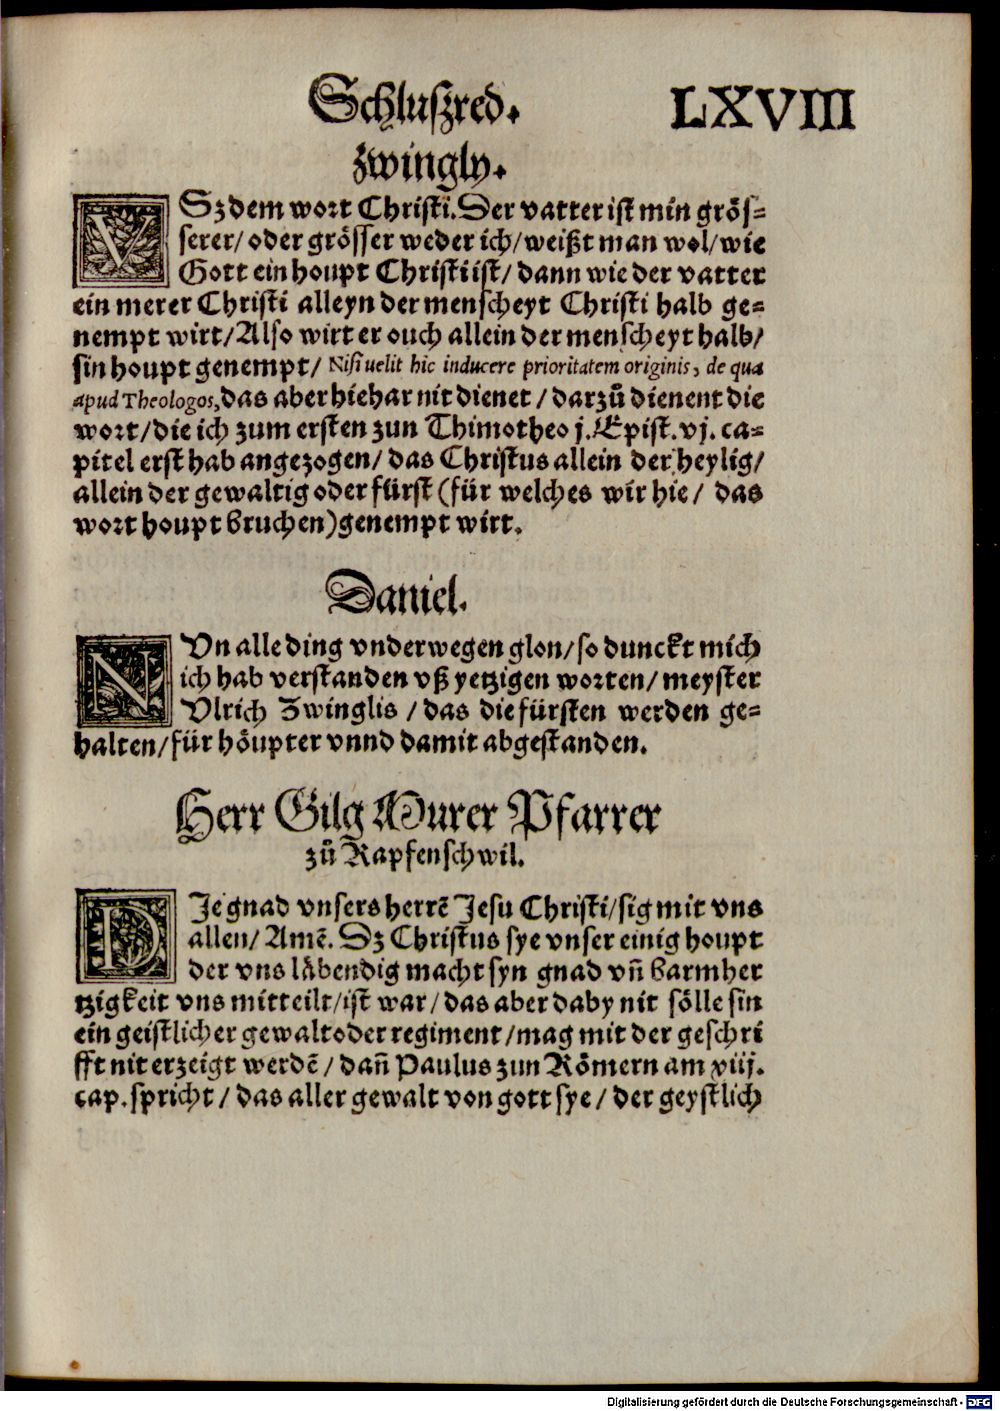 Schluszred. LXVIII
zwingly.
VSz dem wort Christi. Der vatter ist min grös=
serer/ oder grösser weder ich/ weißt man wol/ wie
Gott ein houpt Christi ist/ dann wie der vatter
ein merer Christi alleyn der menscheyt Christi halb ge=
nempt wirt/ Also wirt er ouch allein der menscheyt halb/
sin houpt genempt/ Nisi uelit hic inducere prioritatem originis, de qua
apud Theologos, das aber hiehar nit dienet / darzuͦ dienent die
wort/ die ich zum ersten zun Thimotheo j. Epist. vj. ca=
pitel erst hab angezogen/ das Christus allein der heylig/
allein der gewaltig oder fürst (für welches wir hie / das
wort houpt bruchen) genempt wirt.
Daniel.
NUn alle ding vnderwegen glon/ so dunckt mich
ich hab verstanden vß yetzigen worten/ meyster
Ulrich Zwinglis / das die fürsten werden ge=
halten/ für höupter vnnd damit abgestanden.
Herr Gilg Murer Pfarrer
zuͦ Rapfenschwil.
DIe gnad vnsers herrē Jesu Christi/ sig mit vns
allen/ Amē. Dz Christus sye vnser einig houpt
der vns läbendig macht syn gnad vn̄ barmher
tzigkeit vns mitteilt/ ist war/ das aber daby nit sölle sin
ein geistlicher gewalt oder regiment / mag mit der geschri
fft nit erzeigt werdē / dan̄ Paulus zun Römern am xiij.
cap. spricht / das aller gewalt von gott sye / der geystlich
Digitalisierung gefördert durch die Deutsche Forschungsgemeinschaft - DFG